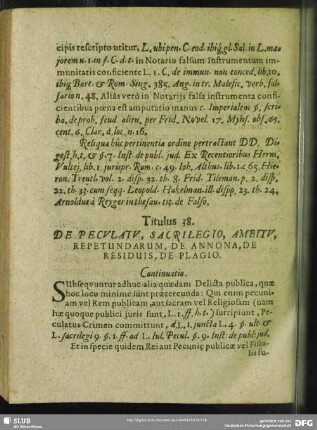 cipis rescripto utitur, L. ubi pen. C. eod. ibiq; gl. Sal. in L. ma-
jorem n. 1. in f. C. d. t. in Notario falsum Instrumentum im-
munitatis conficiente L. 1. C. de immun. non conced. lib, 10.
ibiq; Bart. & Rom. Sing. 385. Ang. in tr. Malefic, verb. fal-
sarion. 48. Alias verò in Notarijs falsa instrumenta confi-
cientibus pœna est amputatio manus c. Imperialem §. scri-
ba, de proh. feud alien. per Frid. Novel. 17. Myhs. obs. 65.
cent. 6. Clar. d. loc. n. 16.
Reliqua huc pertinentia ordine pertractant DD. Di-
gest. h, t, & §. 7. Inst. de publ. jud. Ex Recentioribus Herm,
Vultej. lib. 1. jurispr. Rom. c. 49. Joh. Althus. lib. 1. c. 65. Hie-
ron. Treutl. vol. 2. disp. 32. th. 8. Frid. Tileman. p. 2. disp.
22. th. 33. cum seqq. Leopold. Hakelman. ill. dispp. 23. th. 24,
Arnoldus à Reyger in thesau. tit. de Falso.
Titulus 38.
DE PECULATU, SACRILEGIO, AMBITU,
REPETUNDARUM, DE ANNONA, DE
RESIDUIS, DE PLAGIO.
Continuatio.
SUbsequuntur adhuc alia quædam Delicta publica, quæ
hoc loco minimè sunt prætereunda: Qui enim pecuni-
am vel Rem publicam, aut sacram vel Religiosam (nam
hæ quoque publici juris sunt, L. 1. ff. h. t.) surripiunt, Pe-
culatus Crimen committunt, d. L. 1. juncta L. 4. §. ult. &
L. sacrilegi 9. §. 1. ff. ad L. Jul. Pecul. §. 9. Inst. de publ. jud.
Et in specie quidem Rei aut Pecuniæ publicæ vel Fisca-
lis su-
SLUB
DFG